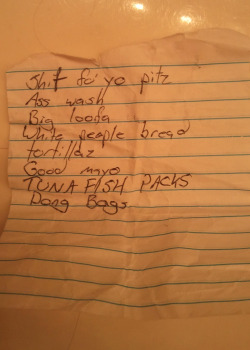 Shit fo' yo pitz
Ass wash
Big loofa
White people bread
tortillaz
Good mayo
TUNA FISH PACKS
Dang Bags